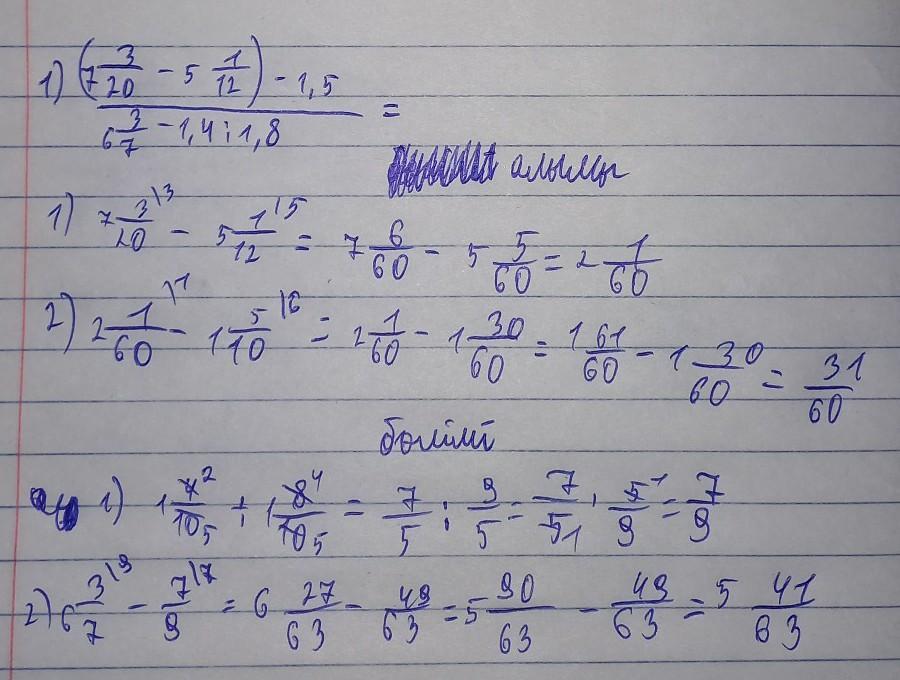 1) (7 3/20 - 5 1/12) - 1,5
6 3/7 - 1,4 : 1,8 =
алымы
1) 7 3\3/20 - 5 1\5/12 = 7 6/60 - 5 5/60 = 2 1/60
2) 2 1\1/60 - 1 5\6/10 = 2 1/60 - 1 30/60 = 1 61/60 - 1 30/60 = 31/60
бөлімі
1) 1 4²/10₅ : 1 8⁴/10₅ = 7/5 : 9/5 = 7/5₁ · 5¹/9 = 7/9
2) 6 3\9/7 - 7\7/9 = 6 27/63 - 49/63 = 5 90/63 - 49/63 = 5 41/63